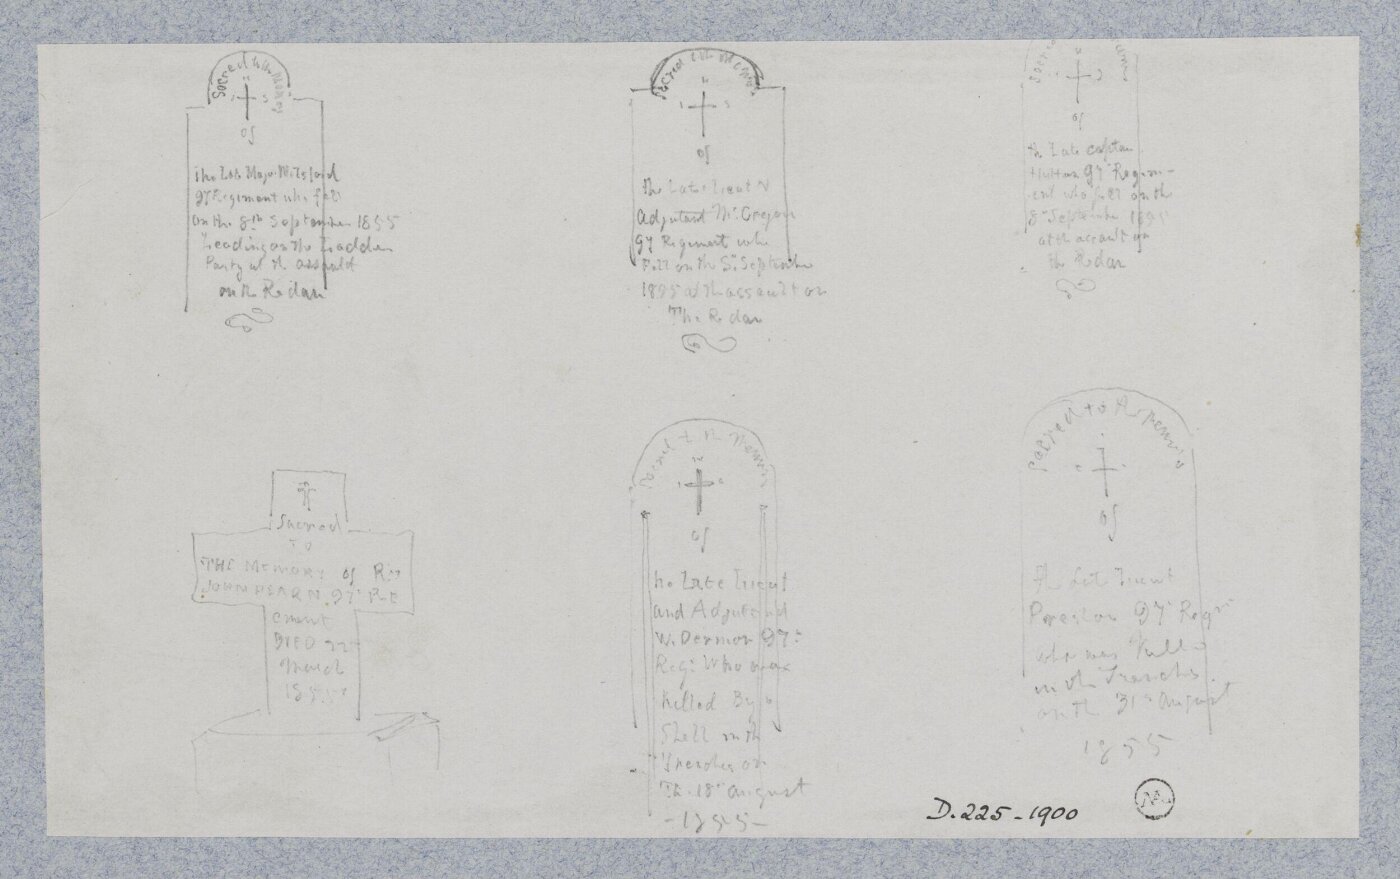 Sacred to the Memory
of
The Late Major Welsford
97 Regiment who fell
on the 8th September 1855
Leading on the Ladder
Party at the assault
on the Redan
Sacred to the Memory
of
the Late Lieut
Adjutant McGregor
97 Regiment who
Fell on the 8th September
1855 at the assault on
The Redan
Sacred
of
the Late captain
Hutton 97th Regim-
ent who fell on the
8th September 1855
at the assault on
the Redan
Sacred
TO
THE MEMORY of
JOHN HEARN 97th RE
DIED 22
March
1855
Sacred to the Memory
of
he Late Lieut
and Adjutand
97th
Regt Who was
Killed By a
Shell in th
Trenches on
The 18th august
-1855-
Sacred to
of
Lieut
Preston 97th Regt
who was Killed
in the Trenches
on the 31st August
1855
D.225-1900